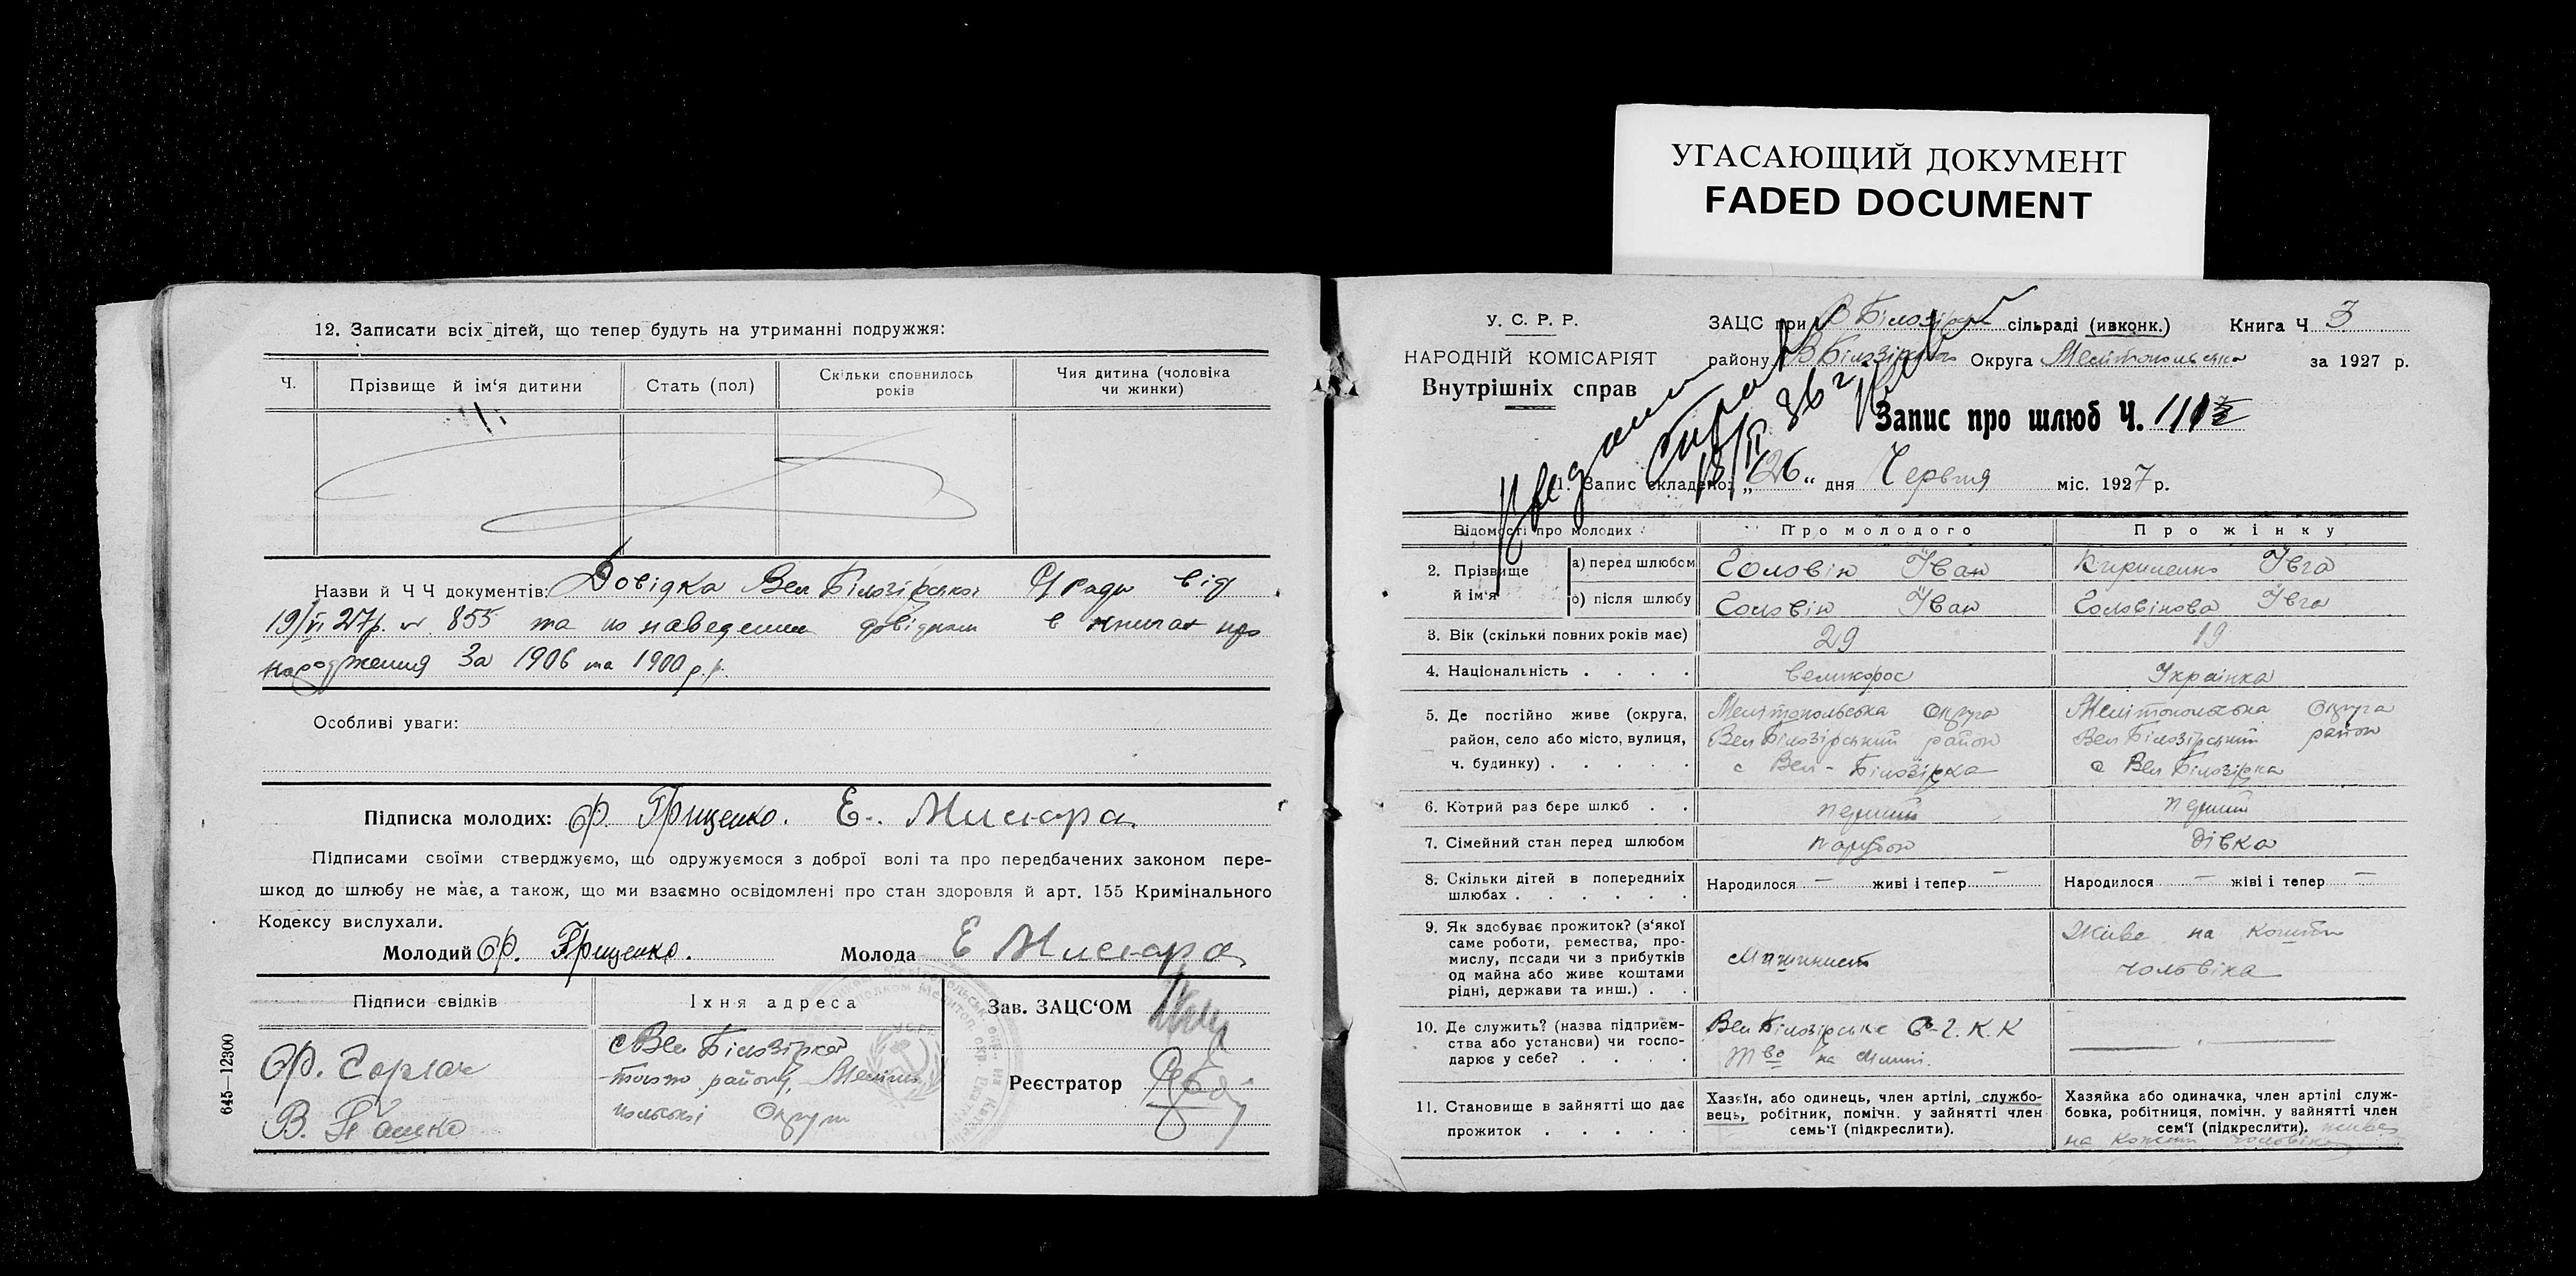 УГАСАЮЩИЙ ДОКУМЕНТ
FADED DOCUMENT
12. Записати всіх дітей, що тепер будуть на утриманні подружжя:
Ч. Прізвище й ім'я дитини Стать (пол) Скільки сповнилось років Чия дитина (чоловіка чи жинки)
Назви й Ч Ч документів: Довідка Вел Білозірської С/ради від
19/VI 27р. № 855 та по наведеним довідкам в книгах про
народження за 1906 та 1900 р.р.
Особливі уваги:
Підписка молодих: Ф. Грищенко. Е. Мисюра
Підписами своїми стверджуємо, що одружуємося з доброї волі та про передбачених законом пере-
шкод до шлюбу не має, а також, що ми взаємно освідомлені про стан здоровля й арт. 155 Кримінального
Кодексу вислухали.
Молодий Ф. Грищенко. Молода Е Мисюра
Підписи євідків Їхня адреса
Зав. ЗАЦС'ОМ
Ф. Горлач
В. Пашко
с Вел Білозірка
того району, Меліто
польської Округи
Реєстратор
645—12300
У. С. Р. Р.
НАРОДНІЙ КОМІСАРІЯТ
Внутрішніх справ
ЗАЦС при В Білозірск сільраді (ивконк.) Книга Ч 3
району В Білозірського Округа Мелітопольська за 1927 р.
справка
18/II 36 г
Запис про шлюб Ч. 111
1. Запис складено: „26" дня Червня міс. 1927 р.
Відомості про молодих Про молодого Про жінку
2. Прізвище й ім'я
а) перед шлюбом Головін Іван Кириленко Ївга
б) після шлюбу Головін Іван Головінова Ївга
3. Вік (скільки повних років має) 29 19
4. Національність великорос Українка
5. Де постійно живе (округа, Мелітопольська Округа Мелітопольська Округа
район, село або місто, вулиця, Вел Білозірський район Вел Білозірський район
ч. будинку) с Вел-Білозірка с Вел Білозірка
6. Котрий раз бере шлюб перший перший
7. Сімейний стан перед шлюбом парубок дівка
8. Скільки дітей в попередніх шлюбах Народилося — живі і тепер — Народилося — жіві і тепер —
9. Як здобуває прожиток? (з'якої
саме роботи, ремества, про-
мислу, посади чи з прибутків
од майна або живе коштами
рідні, держави та инш.)
Машинист
Живе на кошти
чоловіка
10. Де служить? (назва підприєм-
ства або установи) чи госпо-
дарює у себе?
Вел Білозірське С-Г. К. К
Т-во на млині.
11. Становище в зайнятті що дає
прожиток
Хазяїн, або одинець, член артілі, службо-
вець, робітник, помічн. у зайнятті член
семь'ї (підкреслити).
Хазяйка або одиначка, член артілі служ-
бовка, робітниця, помічн. у зайнятті член
сем'ї (підкреслити). живе
на кошти чоловіка